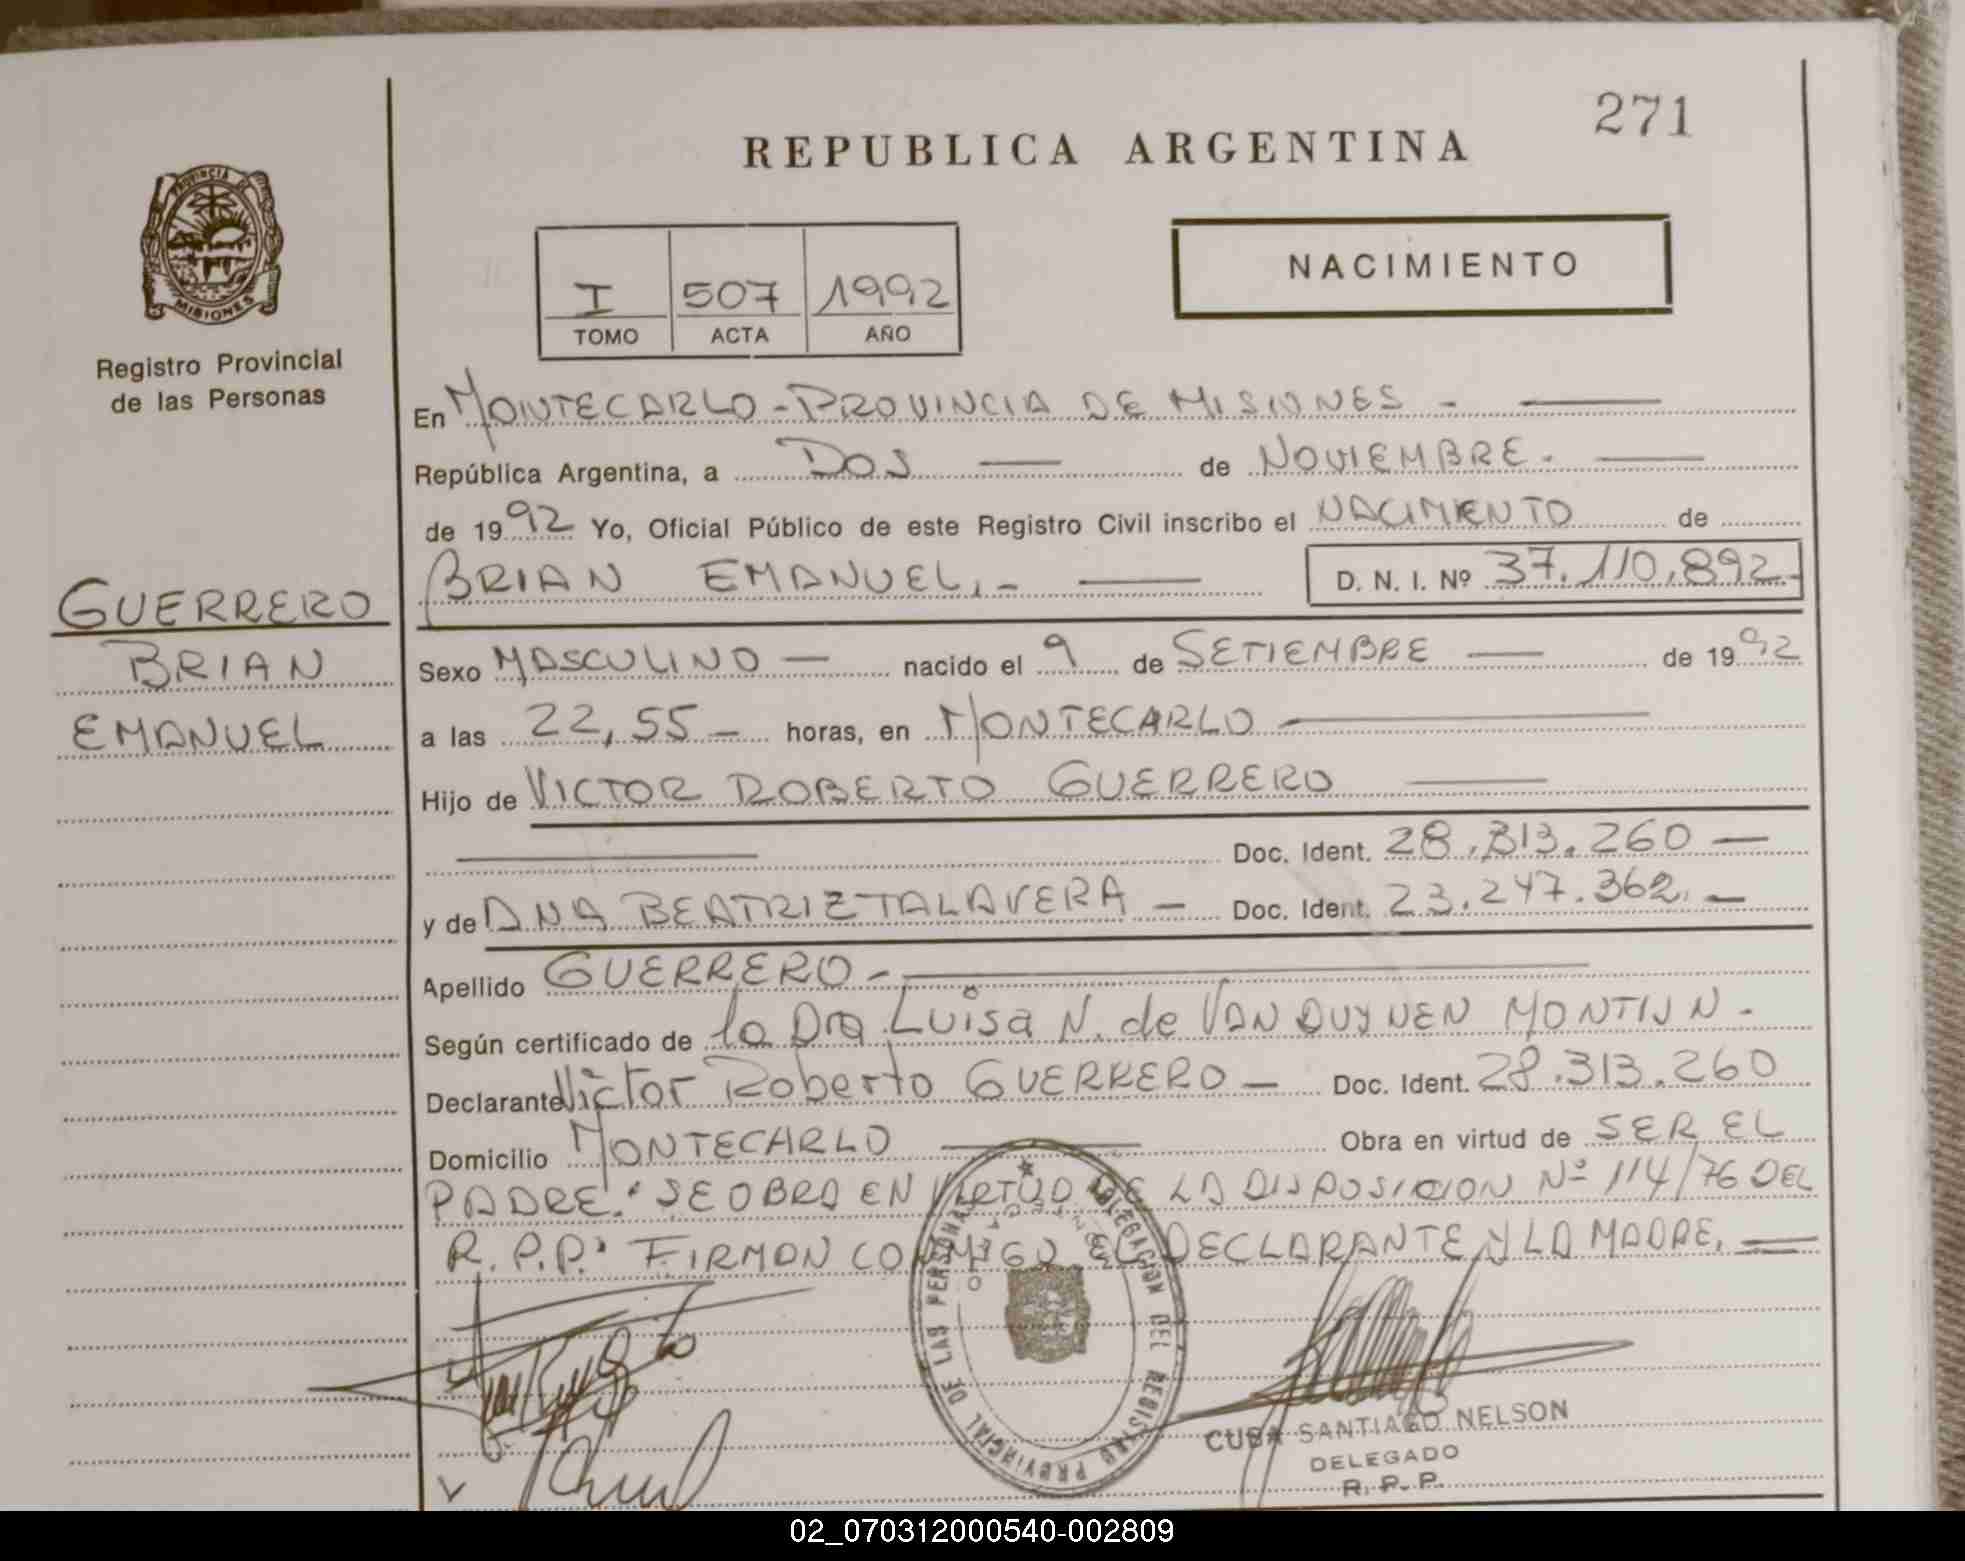 271
REPUBLICA ARGENTINA
PROVINCIA DE
MISIONES
Registro Provincial
de las Personas
I 507 1992
TOMO ACTA AÑO
NACIMIENTO
En MONTECARLO - PROVINCIA DE MISIONES -
República Argentina, a DOS de NOVIEMBRE.
de 1992 Yo, Oficial Público de este Registro Civil inscribo el NACIMIENTO de
BRIAN EMANUEL.- D. N. I. Nº 37.110.892-
GUERRERO
BRIAN
EMANUEL
Sexo MASCULINO — nacido el 9 de SETIEMBRE — de 1992
a las 22,55 - horas, en MONTECARLO
Hijo de VICTOR ROBERTO GUERRERO
Doc. Ident. 28.313.260 —
y de ANA BEATRIZ TALAVERA — Doc. Ident. 23.247.362. —
Apellido GUERRERO -
Según certificado de la Dra Luisa N. de VAN DUYNEN MONTIJN -
Declarante Victor Roberto GUERRERO — Doc. Ident. 28.313.260
Domicilio MONTECARLO — Obra en virtud de SER EL
PADRE. SE OBRA EN VIRTUD DE LA DISPOSICION Nº 114/76 DEL
R.P.P. FIRMAN CONMIGO EL DECLARANTE Y LA MADRE. —
DELEGACION DEL REGISTRO PROVINCIAL DE LAS PERSONAS
CUBA SANTIAGO NELSON
DELEGADO
R. P. P.
02_070312000540-002809